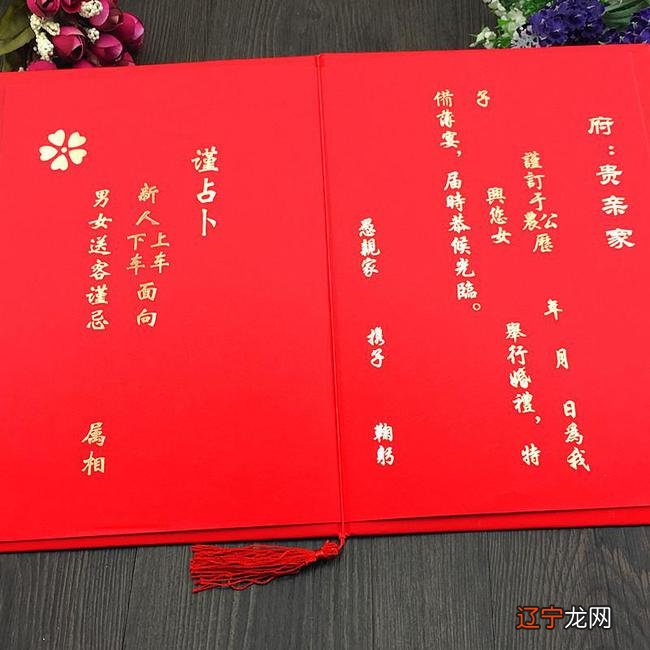 府：贵亲家
謹訂于公農歷 年 月 日為我
子 興您女 舉行婚禮，特
備薄宴，届時恭候光臨。
愚親家 携子 鞠躬
谨占卜
新人上车下车面向
男女送客谨忌 属相
辽宁龙网